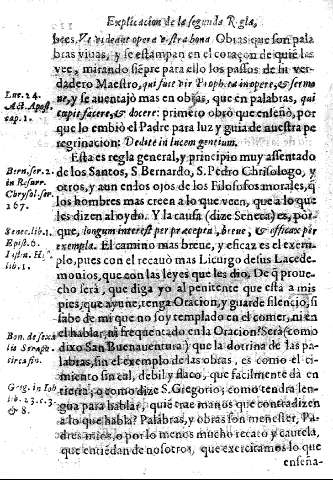 Explicacion de la segunda Regla,
bres. Vt videant opera vestra bona. Obras que son pala
bras viuas, y se estampan en el coraçon de quiẽ las
vee, mirando siẽpre para ello los passos de su ver
dadero Maestro, qui fuit vir Propheta in opere, & sermo
ne, y se auentajò mas en obras, que en palabras, qui
cœpit facere, & docere: primero obrò que enseñò, por
que lo embiò el Padre para luz y guia de nuestra pe
regrinacion: Dedi te in lucem gentium.
Esta es regla general, y principio muy assentado
de los Santos, S. Bernardo, S. Pedro Chrisologo, y
otros, y aun en los ojos de los Filosofos morales, q̃
los hombres mas creen a lo que veen, que a lo que
les dizen al oydo. Y la causa (dize Seneca) es, por-
que, longum inter est per præcepta, breue, & efficax per
exempla. El camino mas breue, y eficaz es el exem-
plo, pues con el recauò mas Licurgo de sus Lacede-
monios, que con las leyes que les dio. De q̃ proue-
cho serà, que diga yo al penitente que està a mis
pies, que ayune, tenga Oracion, y guarde silencio, si
sabe de mi que no soy templado en el comer, ni en
el hablar, ni frequentado en la Oracion? Serà (como
dixo San Buenauentura) que la dotrina de las pa-
labras, sin el exemplo de las obras, es como el ci-
miento sin cal, debil y flaco, que facilmente dà en
tierra; o como dize S. Gregorio; como tendra len-
gua para hablar, quiẽ trae manos que contradizen
a lo que habla? Palabras, y obras son menester, Pa-
dres mios, o por lo menos mucho recato y cautela,
que entiẽdan de nosotros, que exercitamos lo que
enseña-
Luc. 24.
Act. Apost.
cap. 1.
Bern. ser. 2.
in Resurr.
Chrysol. ser.
167.
Senec. lib. 1.
Epist. 6.
lib. 1.
Bon. de sex a
lis Seraph.
circa fin.
Greg. in Iob
lib. 23. c. 3.
& 8.